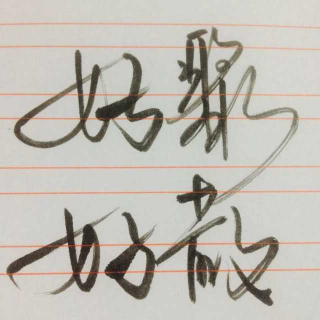 好聚
好散